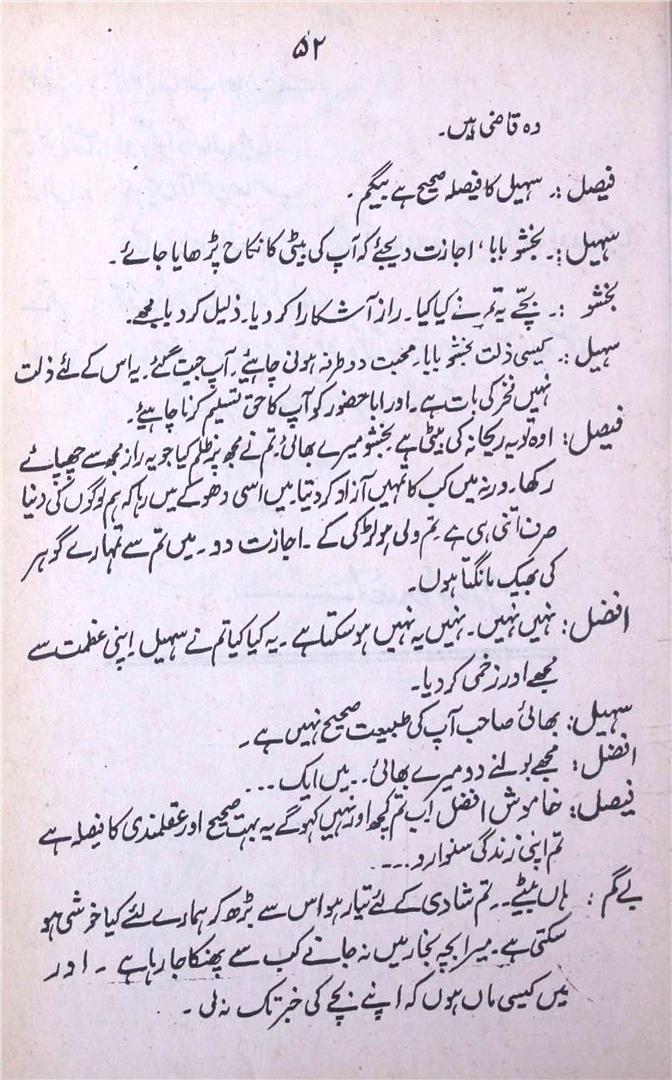 ۵۲
وہ قاضی ہیں۔
فیصل :۔ سہیل کا فیصلہ صحیح ہے بیگم۔
سہیل :۔ بخشو بابا، اجازت دیجئے کہ آپ کی بیٹی کا نکاح پڑھایا جائے۔
بخشو :۔ بچے یہ تم نے کیا کیا۔ راز آشکارا کر دیا۔ ذلیل کر دیا مجھے۔
سہیل :۔ کیسی ذلت بخشو بابا۔ محبت دو طرفہ ہونی چاہئیے۔ آپ جیت گئے۔ یہ اس کے لئے ذلت
نہیں فخر کی بات ہے۔ اور ابا حضور کو آپ کا حق تسلیم کرنا چاہئیے۔
فیصل : اوہ تو یہ ریحانہ کی بیٹی ہے بخشو میرے بھائی۔ تم نے مجھ پر ظلم کیا جو یہ راز مجھ سے چھپائے
رکھا۔ ورنہ میں کب کا تمہیں آزاد کر دیتا۔ میں اسی دھوکے میں رہا کہ ہم لوگوں کی دنیا
صرف اتنی ہی ہے۔ تم ولی ہو لڑکی کے۔ اجازت دو۔ میں تم سے تمہارے گوہر
کی بھیک مانگتا ہوں۔
افضل : نہیں نہیں۔ نہیں یہ نہیں ہو سکتا ہے۔ یہ کیا کیا تم نے سہیل۔ اپنی عظمت سے
مجھے اور زخمی کر دیا۔
سہیل : بھائی صاحب آپ کی طبیعت صحیح نہیں ہے۔
افضل : مجھے بولنے دو میرے بھائی۔۔ میں ایک ۔۔۔
فیصل : خاموش افضل اب تم کچھ اور نہیں کہو گے یہ بہت صحیح اور عقلمندی کا فیصلہ ہے
تم اپنی زندگی سنوارو۔۔۔۔
بےگم : ہاں بیٹے۔۔ تم شادی کے لئے تیار ہو اس سے بڑھ کر ہمارے لئے کیا خوشی ہو
سکتی ہے۔ میرا بچہ بخار میں نہ جانے کب سے پھنکا جا رہا ہے ۔ اور
میں کیسی ماں ہوں کہ اپنے بچے کی خبر تک نہ لی ۔